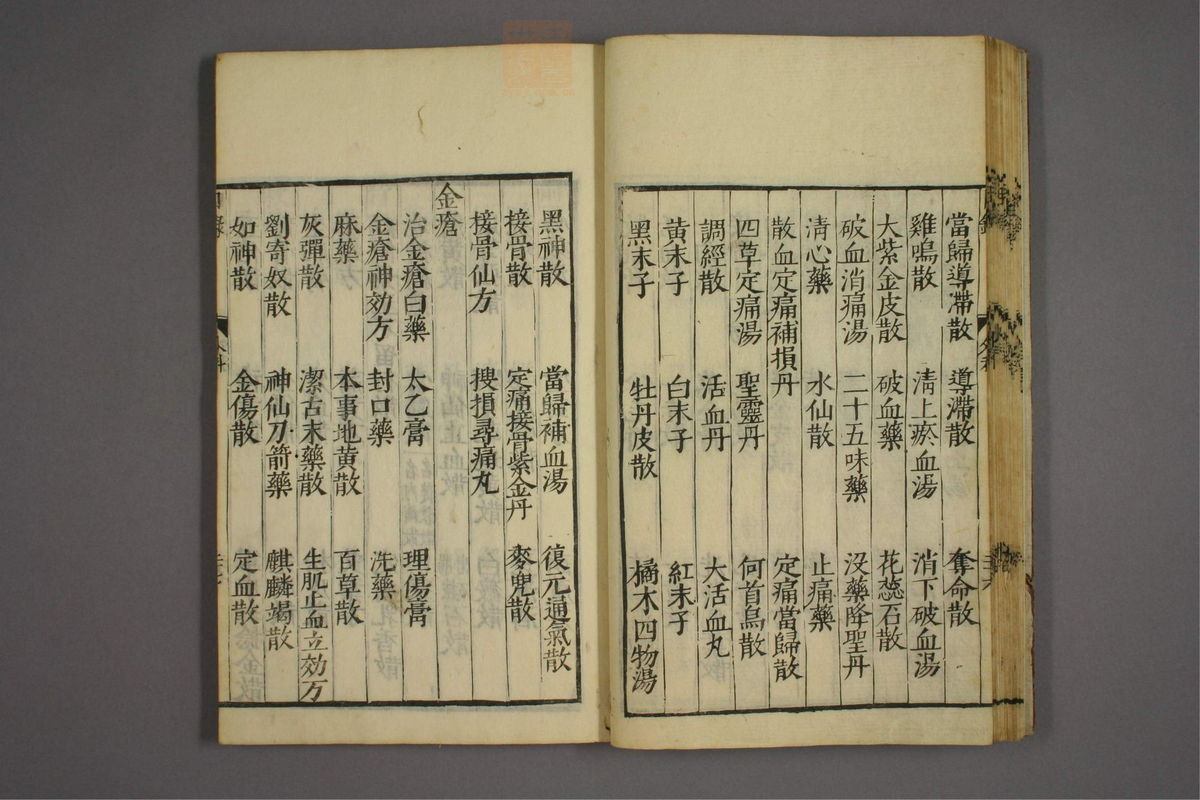 當歸導滯散 導滯散 奪命散
雞鳴散 淸上瘀血湯 消下破血湯
大紫金皮散 破血藥 花蕊石散
破血消痛湯 二十五味藥 没藥降聖丹
淸心藥 水仙散 止痛藥
散血定痛補損丹 定痛當歸散
四草定痛湯 聖靈丹 何首烏散
調經散 活血丹 大活血丸
黄末子 白末子 紅末子
黑末子 牡丹皮散 橘木四物湯
黑神散 當歸補血湯 復元通氣散
接骨散 定痛接骨紫金丹 麥兠散
接骨仙方 搜損尋痛丸
金瘡
治金瘡白藥 太乙膏 理傷膏
金瘡神効方 封口藥 洗藥
麻藥 本事地黄散 百草散
灰彈散 潔古末藥散 生肌止血立効方
劉寄奴散 神仙刀箭藥 麒麟竭散
如神散 金傷散 定血散